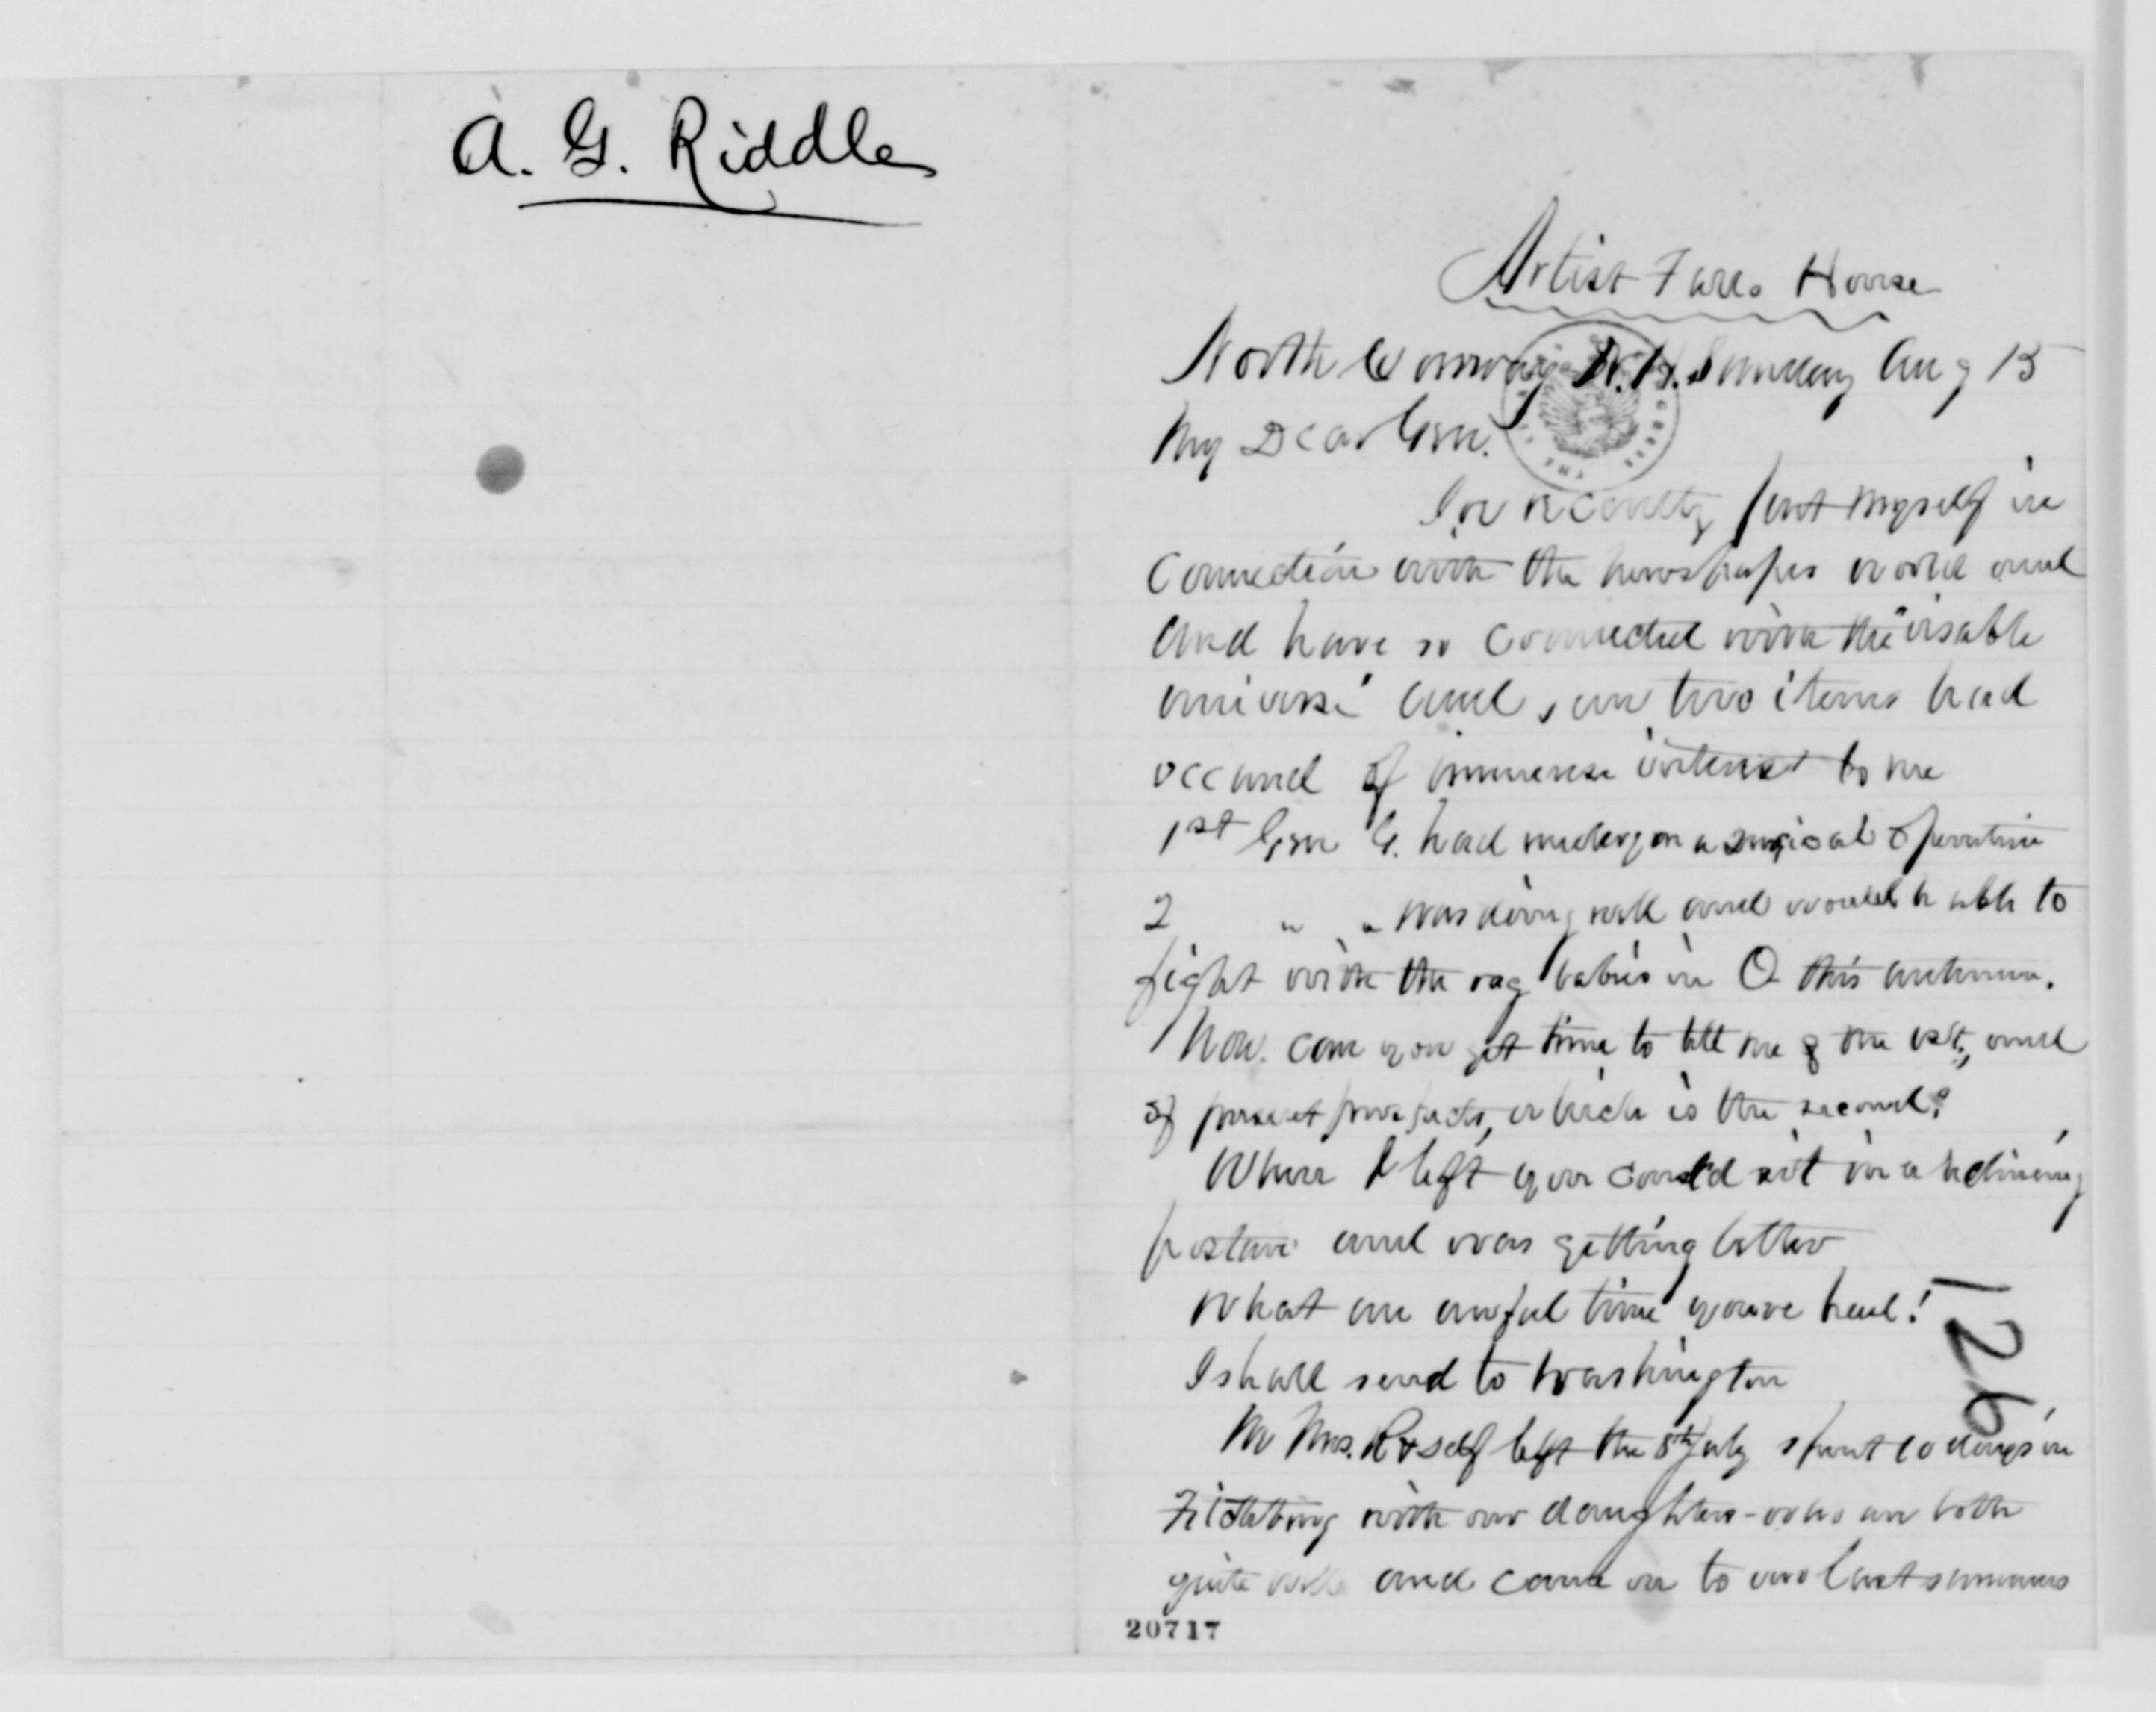 A. G. Riddle
Artist Falls House
North Conway N.H. Sunday Aug 15
My Dear Gen.
I've recently put myself in
connection with the newspaper world and
and have so connected with the "visable
universe" and, saw two items had
occured of immense interest to me
1st Gen G. had undergon a surgical operation
2 " " was doing well and would be able to
fight with the rag babies in O this autumn.
Now. can you get time to tell me of the 1st, and
of present prospects, which is the second?
When I left you could sit in a reclining
posture and was getting better
What an awful time youve had!
I shall send to Washington
Mrs. R & self left the 8th July spent 10 days in
Fitchburg with our daughters - who are both
quite well and came on to our last summers
126
20717